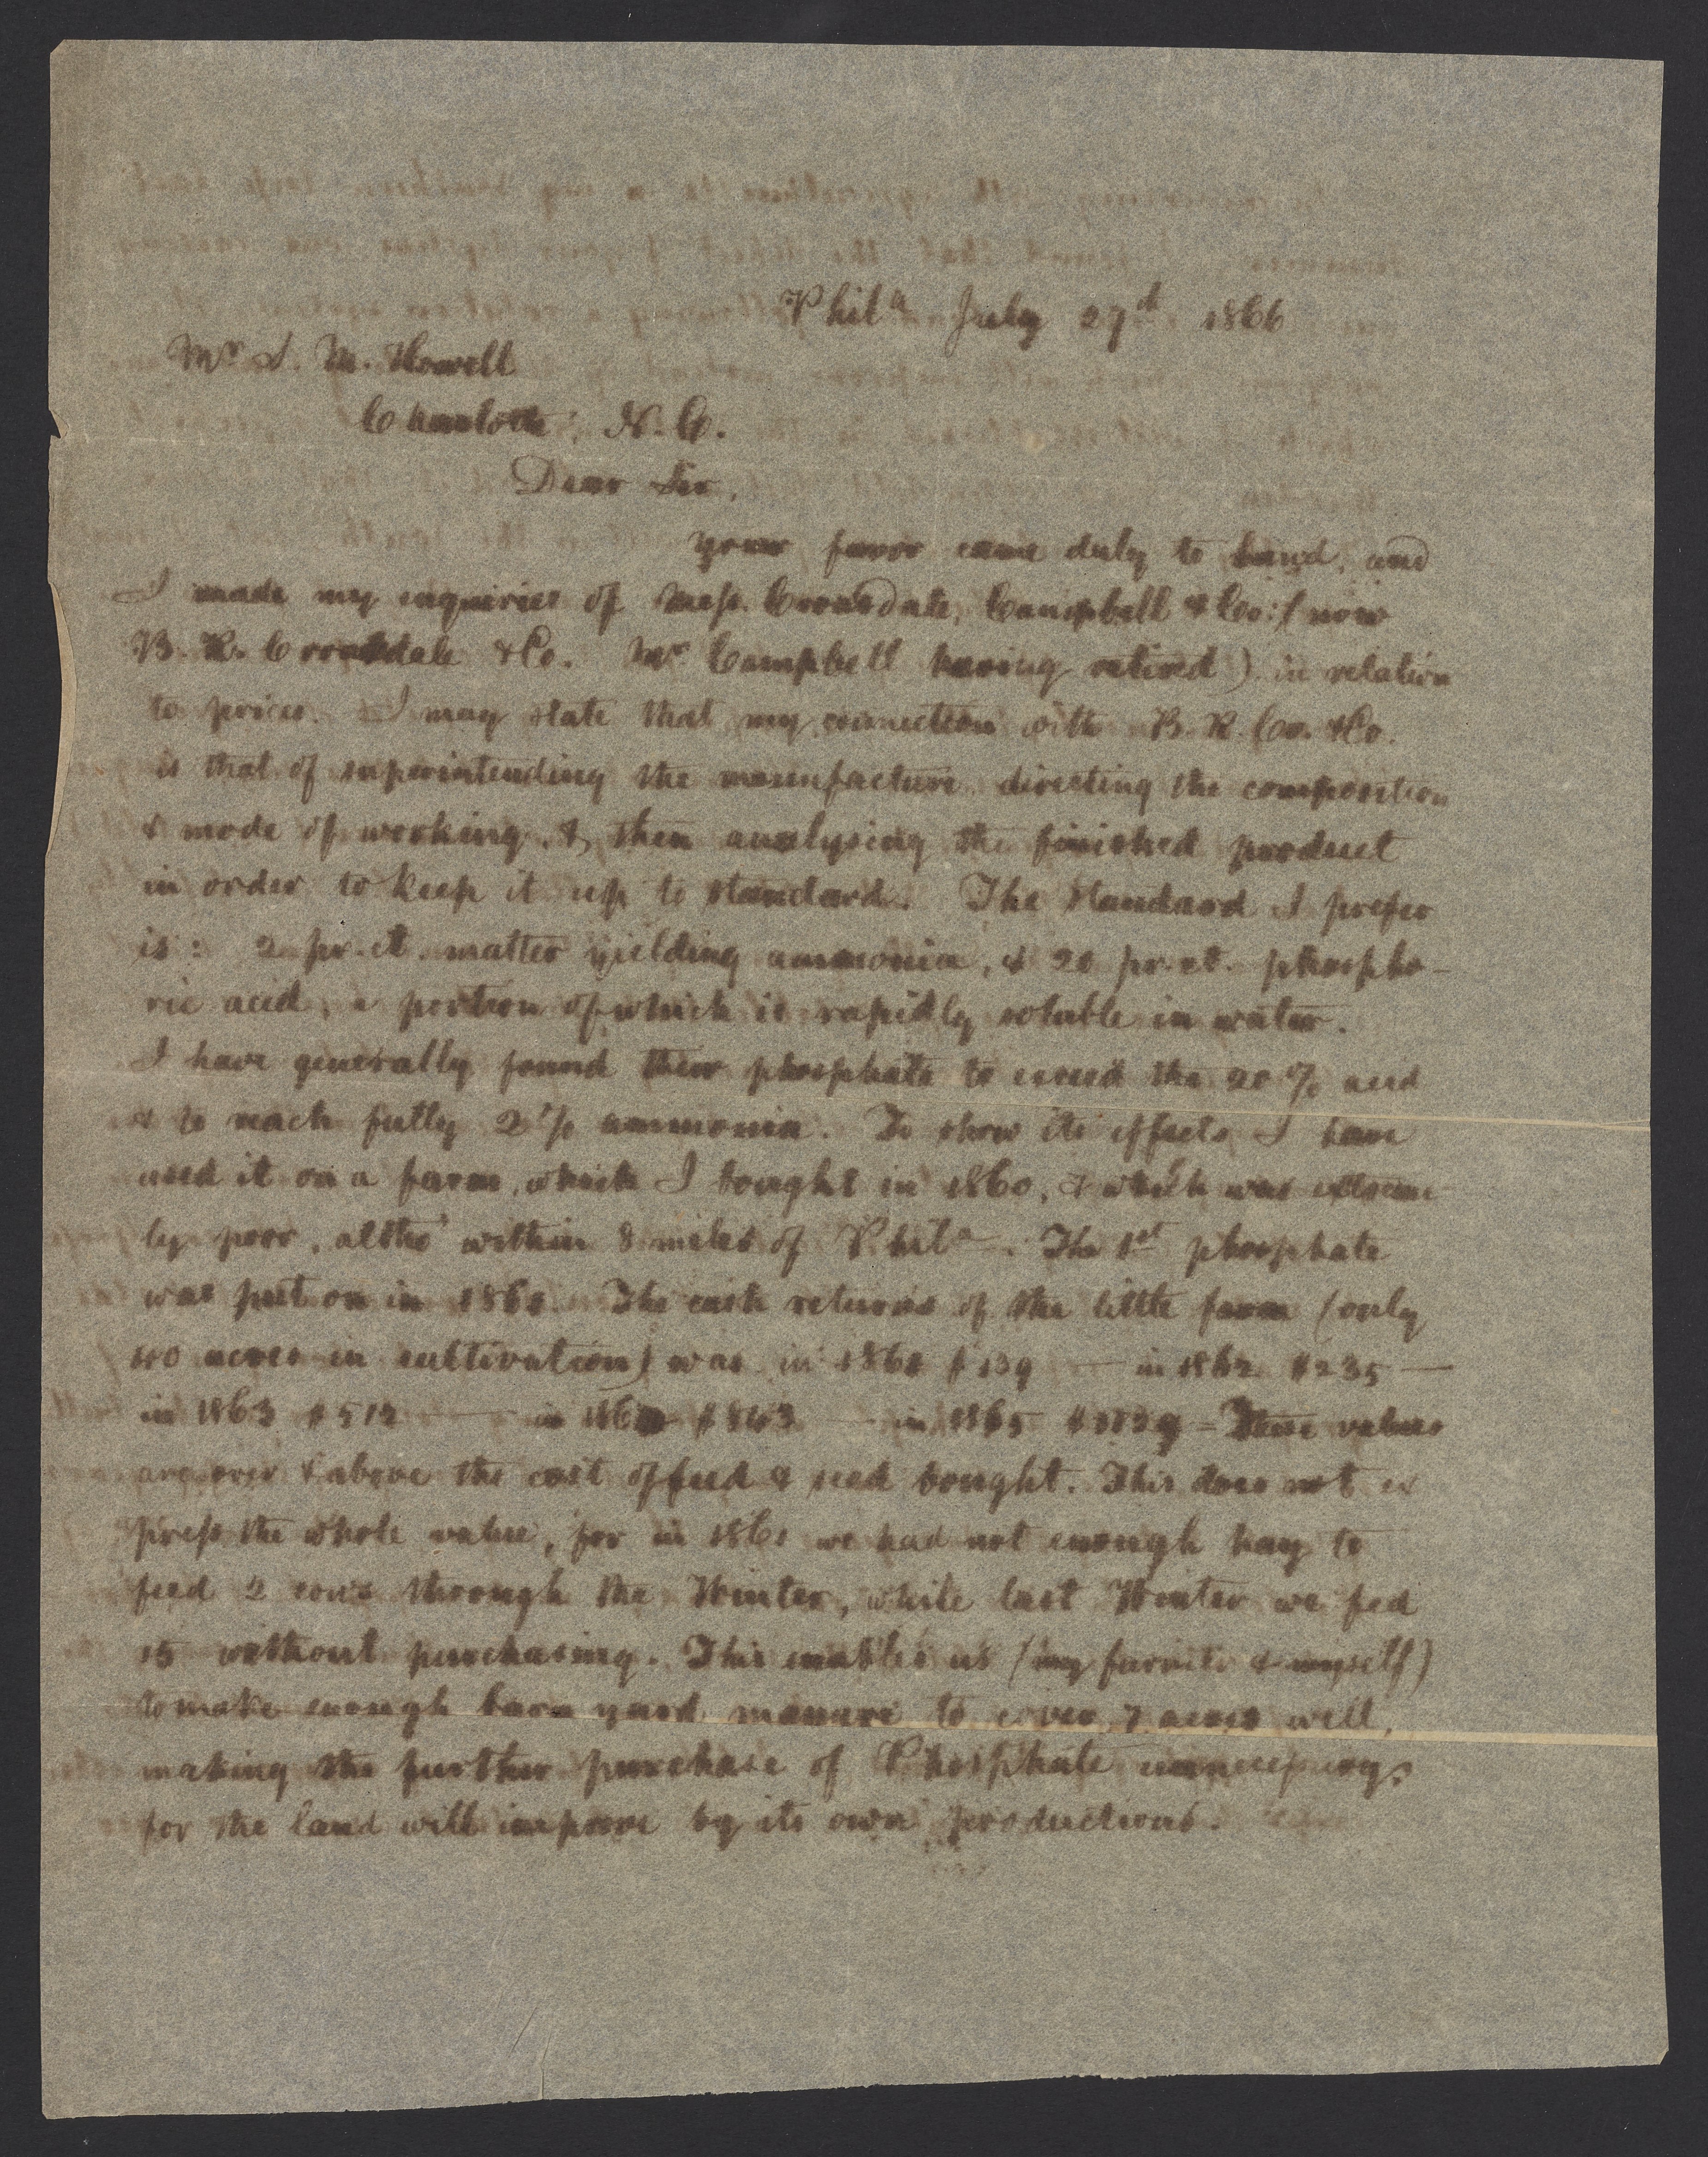 Phila July 27th 1866
Mr S. M. Howell
Charlotte, N. C.
Dear Sir,
Your favor came duly to hand, and
I made my inquiries of Mess. Croasdale, Campbell & Co: (now
B. R. Croasdale & Co. Mr Campbell having retired) in relation
to prices. I may state that my connection with B. R. Cr. & Co.
is that of superintending the manufacture, directing the composition
& mode of working, & then analysing the finished product
in order to keep it up to standard. The standard I prefer
is: 2 pr. ct. matter yielding ammonia, & 20 pr. ct. phospho-
ric acid, a portion of which is rapidly soluble in water.
I have generally found their phosphate to exceed the 20 % acid
& to reach fully 2 % ammonia. To show its effects I have
used it on a farm, which I bought in 1860, & which was extreme
ly poor, altho' within 8 miles of Phila. The 1st phosphate
was put on in 1861. The cash returns of the little farm (only
40 acres in cultivation) was in 1861 $139 — in 1862 $235 —
in 1863 $512 — in 1864 $843 — in 1865 — These values
are over & above the cost of feed & seed bought. This does not ex
press the whole value, for in 1861 we had not enough hay to
feed 2 cows through the Winter, while last Winter we fed
15 without purchasing. This enables us (my & myself)
to make enough barn yard manure to cover 7 acres well,
making the further purchase of Phosphate unnecessary,
for the land will improve by its own productions.